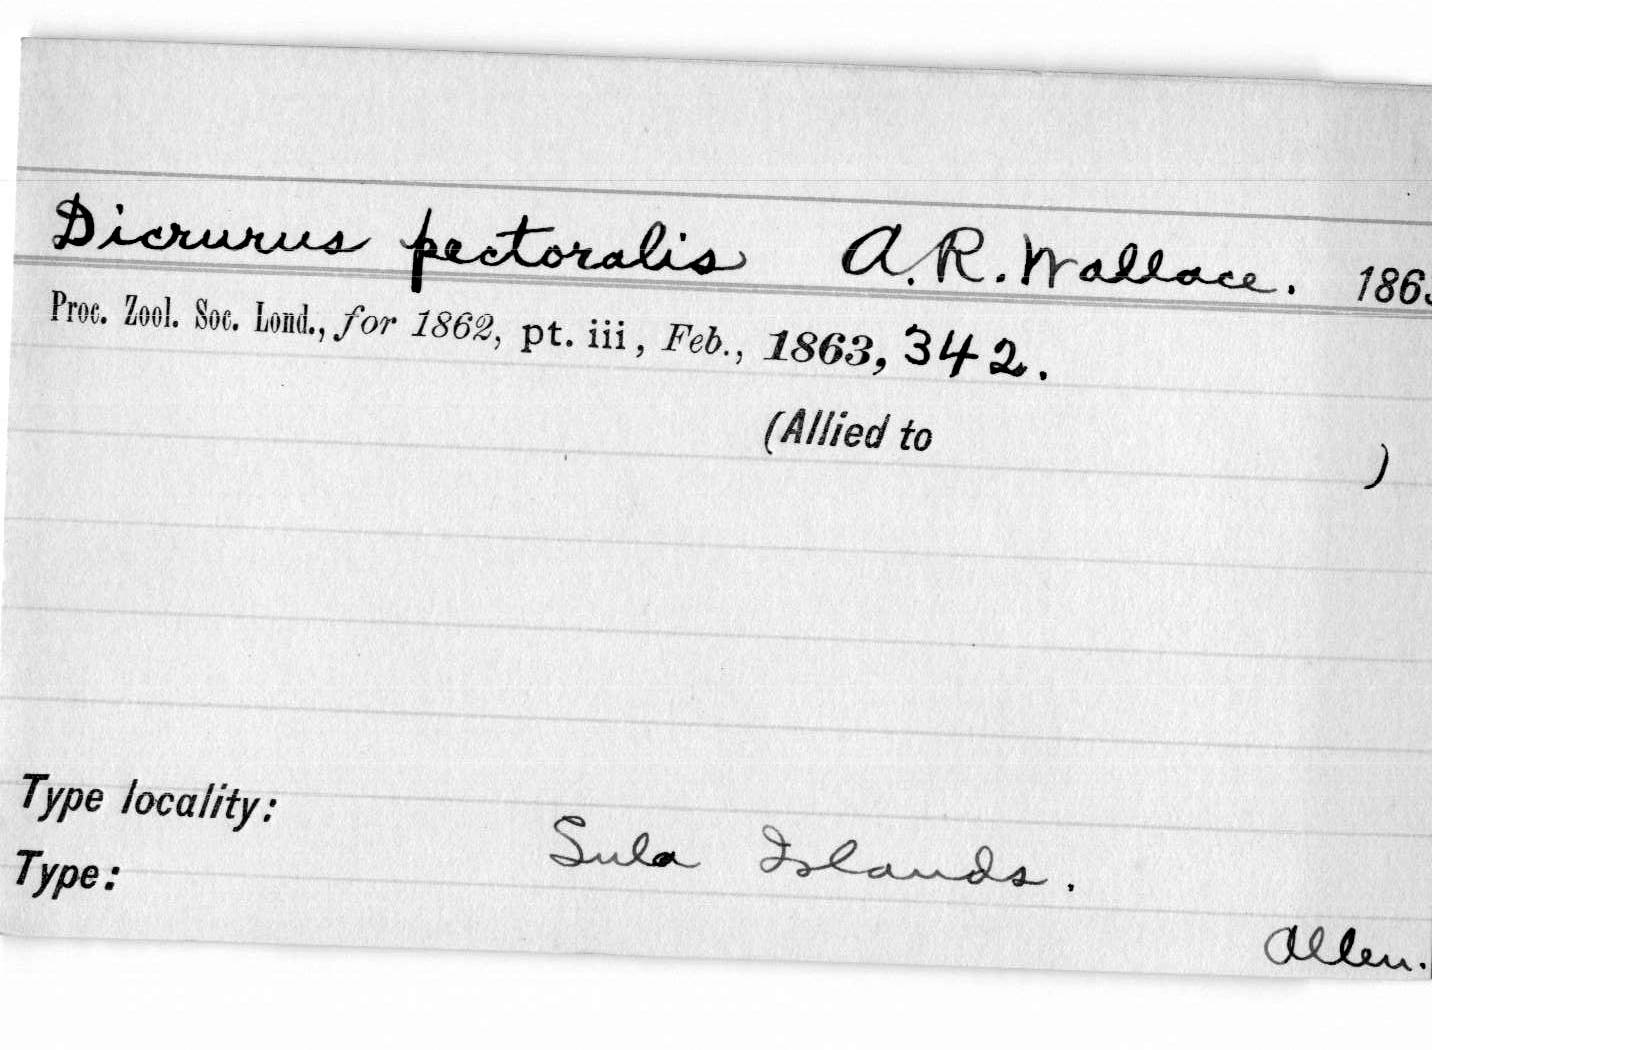 Dicrurus pectoralis A.R. Wallace. 1863
Proc. Zool. Soc. Lond., for 1862, pt. iii, Feb., 1863, 342.
(Allied to )
Type locality:
Sula Islands.
Type:
Allen.